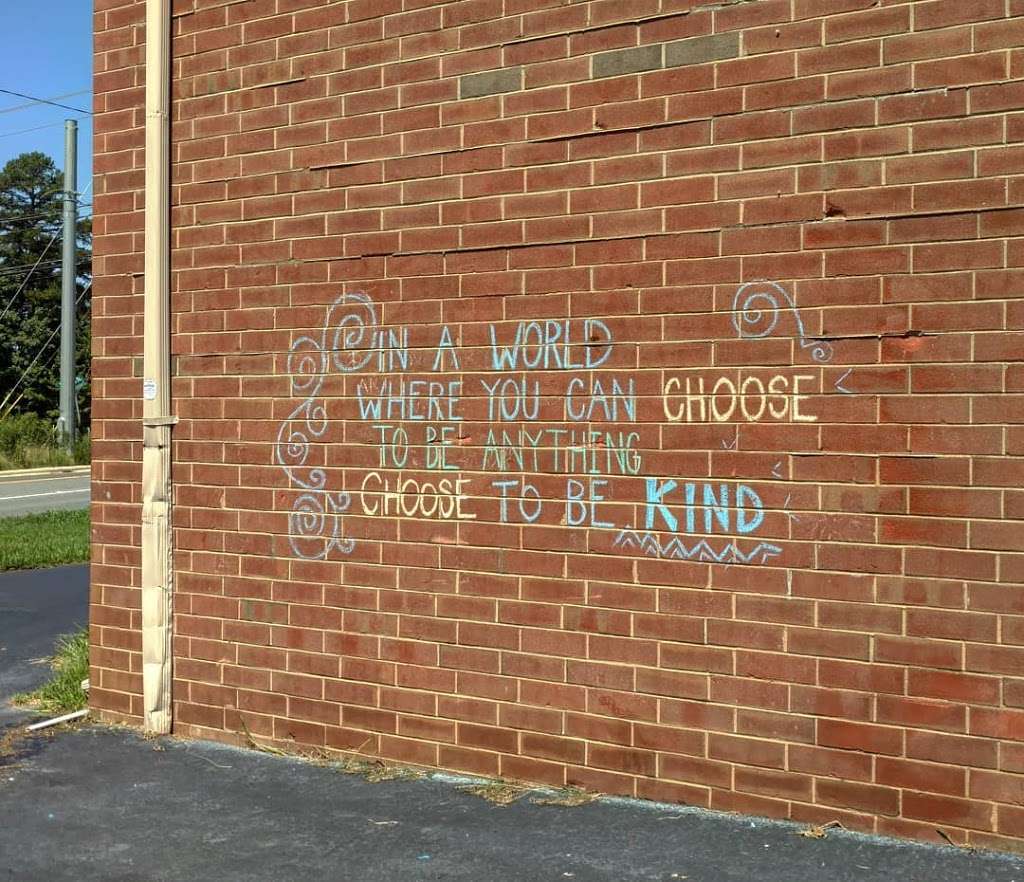 IN A WORLD
WHERE YOU CAN CHOOSE
TO BE ANYTHING
CHOOSE TO BE KIND